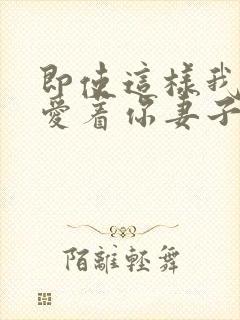 即使這樣我
愛著你妻子
陌離輕舞